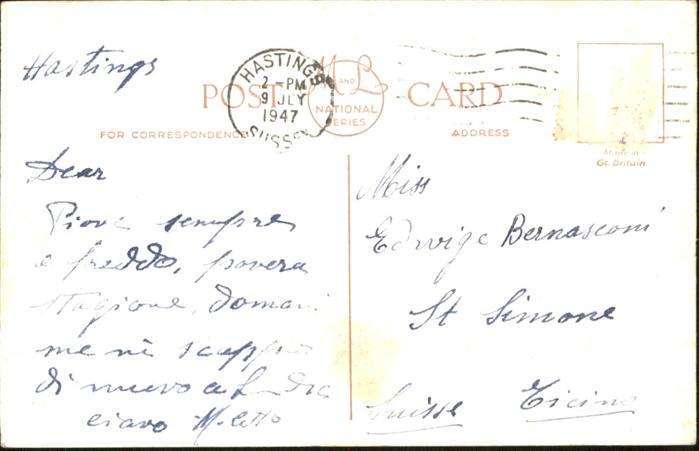 Hastings
HASTINGS
2 - PM
9 JLY
1947
SUSSEX
POST CARD
M & L
AND
NATIONAL
SERIES
FOR CORRESPONDENCE
ADDRESS
Made in
Gt. Britain
Dear
Piove sempre
e freddo, povera
stagione, domani
me ne scappo
di nuovo a Londra
ciavo
Miss
Edwige Bernasconi
St Simone
Suisse Ticino